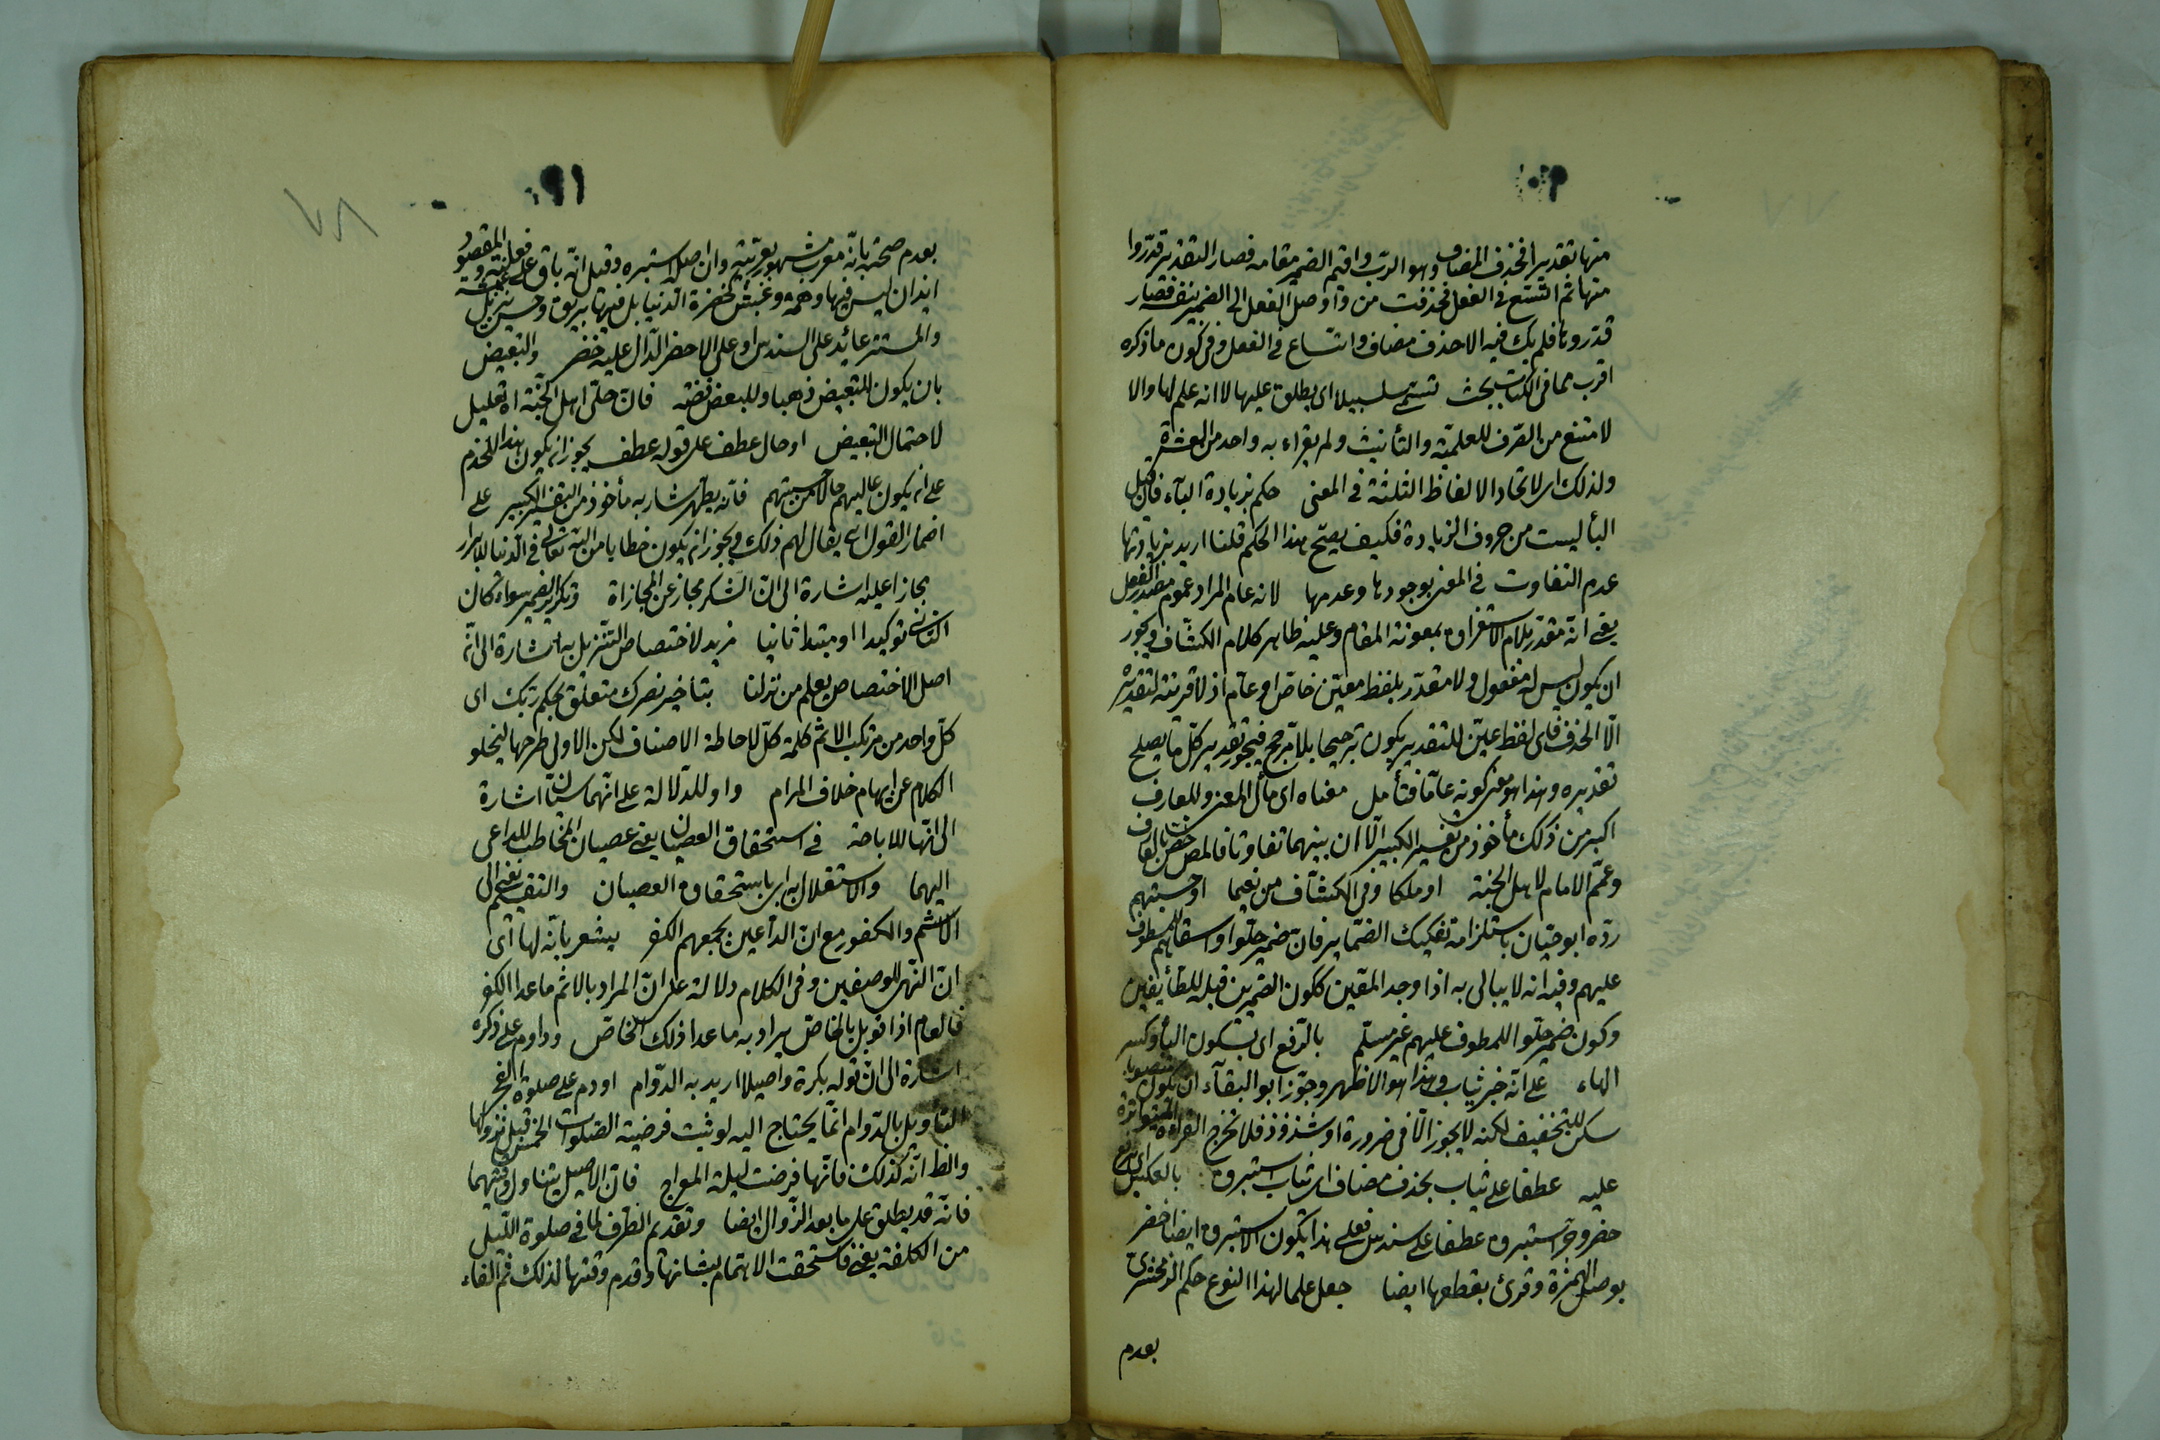 منها تقديرا فحذف المضاف وهو الرب واقيم الضمير مقامه فصار التقدير قدروا
منها ثم اتسع في الفعل فحذفت من واوصل الفعل الى الضمير بنفسه فصار
قدروها فلم يك فيه الا حذف مضاف واتساع في الفعل وفي كون ما ذكره
اقرب مما في الكتاب بحث تسمى سلسبيلا اى يطلق عليها لا انه علم لها والا
لامتنع من الصرف للعلمية والتأنيث ولم يقراء به واحد من العشرة
ولذلك اى لاتحاد الالفاظ الثلثة في المعنى حكم بزيادة الباء فان قيل
البأ ليست من حروف الزيادة فكيف يصح هذا الحكم قلنا اريد بزيادتها
عدم التفاوت في المعنى بوجودها وعدمها لانه عام المراد عموم مصدر الفعل
يعنى انه مقدر بلام الاستغراق بمعونة المقام وعليه ظاهر كلام الكشاف ويجوز
ان يكون ليس له مفعول ولا مقدر بلفظ معين خاص او عام اذ لا قرينة لتقديره
الا الحذف فاى لفظ عين للتقدير يكون ترجيحا بلا مرجح فيجوز تقدير كل ما يصلح
تقديره وهذا هو معنى كونه عاما فتأمل معناه اى مأل المعنى وللعارف
اكبر من ذلك مأخوذ من تفسير الكبير الا ان بينهما تفاوتا فالمص خص بالعارف
وعمم الامام لاهل الجنة او ملكا وفي الكشاف من نعيما او حسبتهم
رده ابو حيان باستلزامه تفكيك الضماير فان ضمير حلوا وسقاهم للمطوف
عليهم وفيه انه لا يبالى به اذا وجد المعين ككون الضميرين قبله للطائفين
وكون ضمير حلوا للمطوف عليهم غير مسلم بالرفع اى بسكون اليأ وكسر
الهاء على انه خبر ثياب وهذا هو الاظهر وجوز ابو البقاء ان يكون منصوبا
سكن للتخفيف لكنه لا يجوز الا في ضرورة او شذوذ فلا تخرج القراءة المتواترة
عليه عطفا على ثياب بحذف مضاف اى ثياب استبرق بالعكس اى برفع
خضر وجر استبرق عطفا على سندس فعلى هذا يكون الاستبرق ايضا اخضر
بوصل الهمزة وقرئ بقطعها ايضا جعل علما لهذا النوع حكم الزمخشرى
بعدم
بعدم صحته بانه معرب مشهور تعريبه وان اصله استبره وقيل انه باق على فعليته والمقصود
ايذان ليس فيها وخمة وغبش كخضرة الدنيا بل فيها بريق وحسن
والمستتر عائد على السندس او على الاخضر الدال عليه خضر والتبعيض
بان يكون للتبعيض ذهبا وللبعض فضة فان حلى اهل الجنة اه تعليل
لاحتمال التبعيض او حال عطف على قوله عطف يجوز ان يكون هذا للخدم
على ان يكون عاليهم حالا من حسبتهم فانه يطهر شاربه مأخوذ من التفسير الكبير على
اضمار القول اى يقال لهم ذلك ويجوز ان يكون خطابا من الله تعالى في الدنيا للابرار
مجازا عليه اشارة الى ان الشكر مجاز عن المجازاة وتكرير الضمير سواء كان
الثانى توكيدا او مبتدا ثانيا مزيد لاختصاص التنزيل به اشارة الى ان
اصل الاختصاص يعلم من نزلنا بتأخير نصرك متعلق بحكم ربك اى
كل واحد من مرتكب الاثم كلمة كل لاحاطة الاصناف لكن الاولى طرحها ليخلو
الكلام عن ايهام خلاف المرام واو للدلالة على انهما سيان اشارة
الى انها للاباحة في استحقاق العصيان يعنى عصيان المخاطب للداعى
اليهما والاستقلال به اى باستحقاق العصيان والتقسيم يعنى الى
الاثم والكفور مع ان الداعين يجمعهم الكفر يشعر بانه لها اى
ان النهى للوصفين وفي الكلام دلالة على ان المراد بالاثم ما عدا الكفر
فالعام اذا قوبل بالخاص يراد به ما عدا ذلك الخاص وداوم على ذكره
اشارة الى ان قوله بكرة واصيلا اريد به الدوام او دم على صلوة الفجر
التأويل بالدوام انما يحتاج اليه لو ثبت فرضية الصلوات الخمس قبل نزولها
والظ انه كذلك فانها فرضت ليلة المعراج فان الاصيل يتناول وقتيهما
فانه قد يطلق على ما بعد الزوال ايضا وتقديم الظرف لما في صلوة الليل
من الكلفة يعنى فاستحقت الاهتمام بشانها وقدم وقتها لذلك ثم الفاء